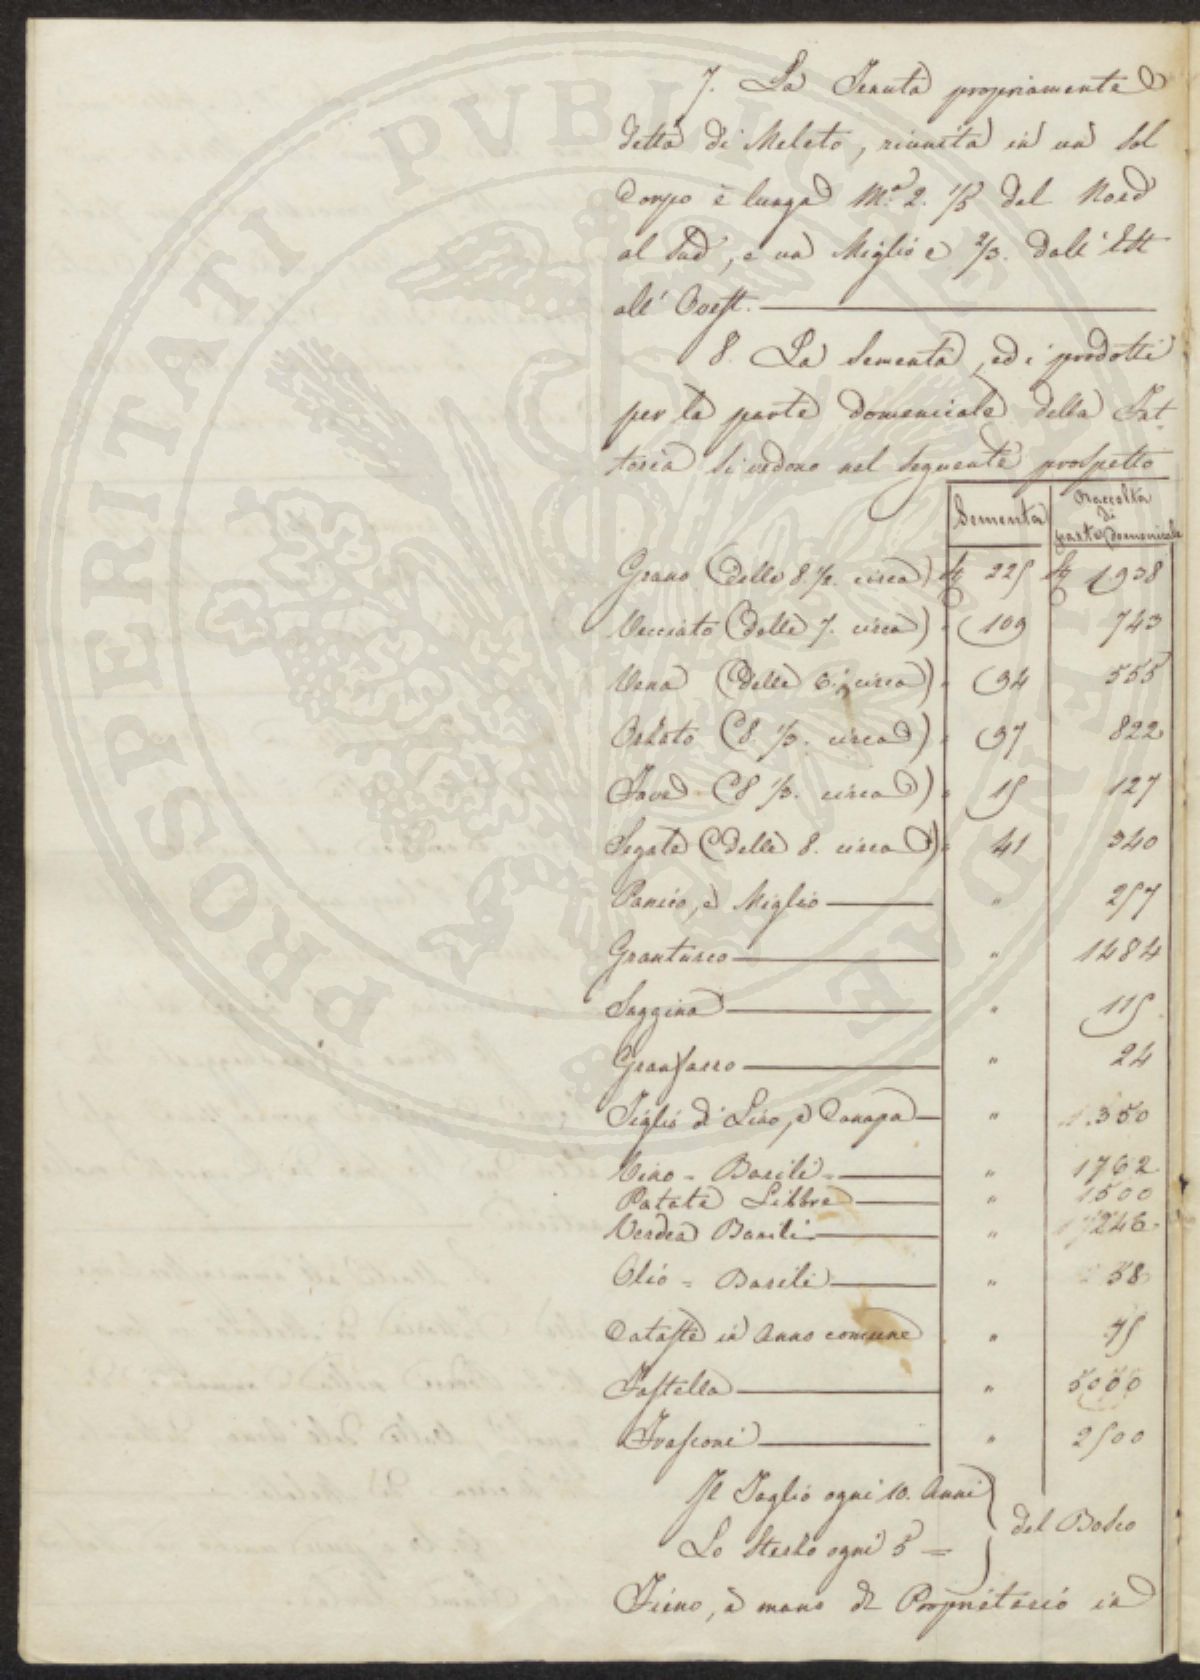 7. La Tenuta propriamente
detta di Meleto, riunita in un sol
Corpo è lunga M.a 2. 1/3 del Nord
al Sud, e un Miglio e 2/3. dall'Est
all'Ovest.
8. La Sementa, ed i prodotti
per la parte domenicale della Fat-
toria si vedono nel seguente prospetto
Sementa | Raccolta di parte domenicale
Grano (delle 8. 1/2. circa) 225 1938
Vecciato (delle 7. circa) " 109 743
Vena (delle 6. circa) " 94 555
Orzato (8. 1/3. circa) " 97 822
Fave (8 1/3. circa) " 15 127
Segale (delle 8. circa) " 41 340
Panico, e Miglio " 257
Granturco " 1484
Saggina " 115
Granfarro " 24
Tiglio di Lino, e Canapa " 350
Vino = Barili = " 1762
Patate Libbre " 1500
Verdea Barili " 246
Olio = Barili " 58
Cataste in Anno comune " 75
Fastella " 5000
Frasconi " 2500
Il Taglio ogni 10. Anni
del Bosco
Lo Sterzo ogni 5 =
Fieno, a mano di Proprietario in
PROSPERITATI PVBLICAE AVGENDAE